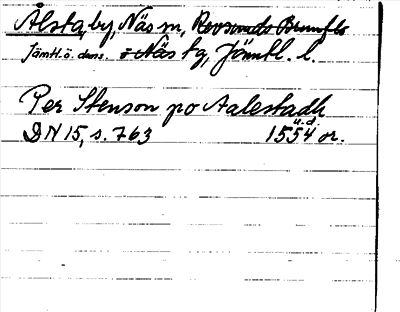 Ålsta, by, Näs sn, Revsunds Brunflo
Jämtl. ö. doms. o Näs tg, Jämtl. l.
Per Stenson po Aalestadh
u.d.
DN 15, s. 763 1554 or.